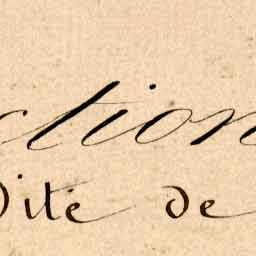 ction
Dité de